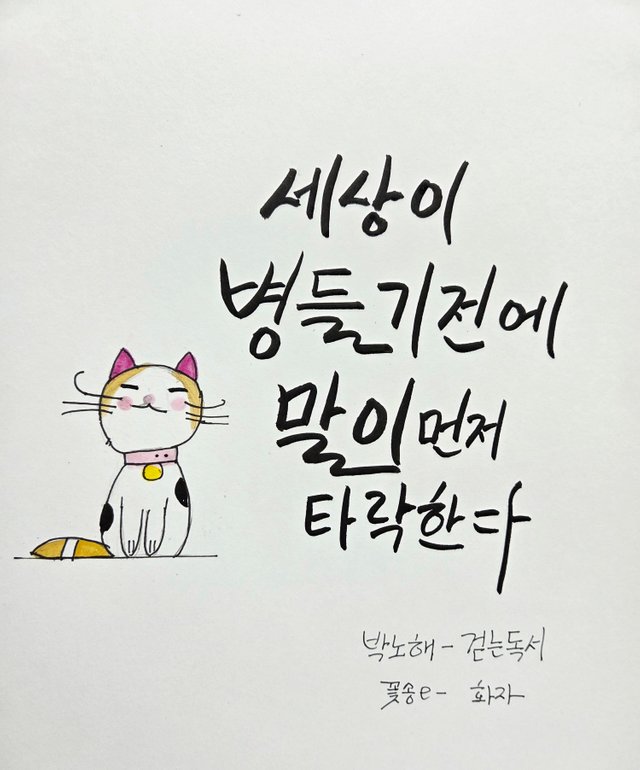 세상이
병들기전에
말이 먼저
타락한다
박노해 - 걷는독서
꽃송e - 화자